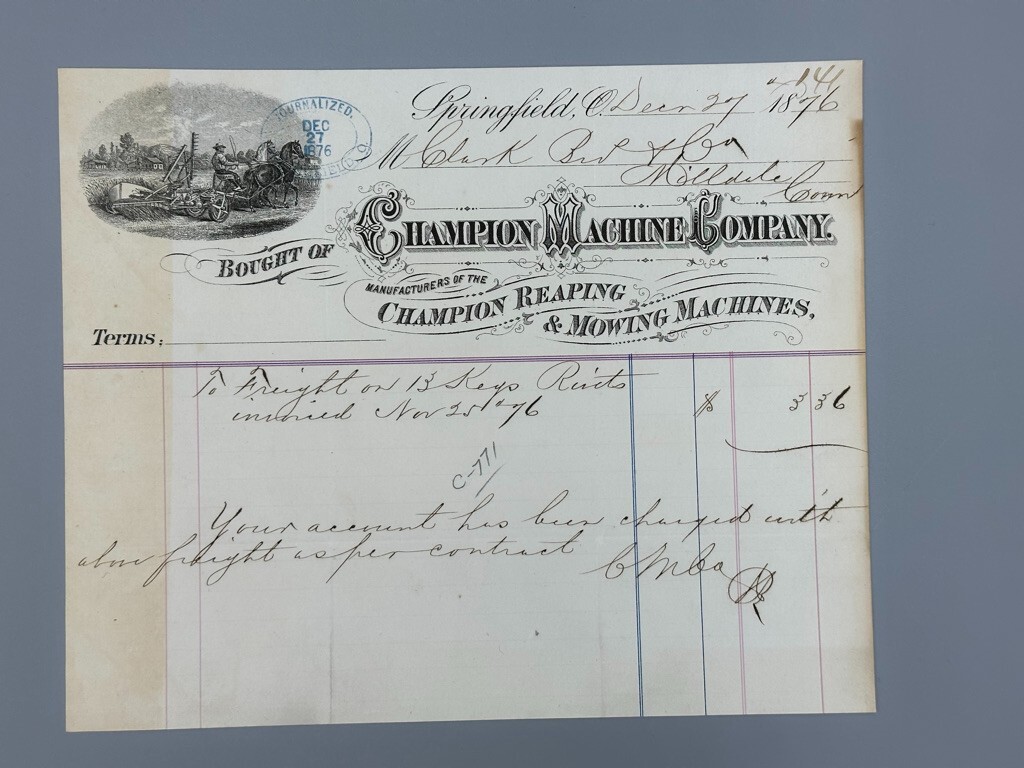 141
JOURNALIZED.
DEC
27
1876
FIELD, O.
Springfield, O. Decr 27 1876
M Clark Bro & Co
Milldale
Conn
BOUGHT OF CHAMPION MACHINE COMPANY.
MANUFACTURERS OF THE
CHAMPION REAPING
& MOWING MACHINES,
Terms:
To Freight on 13 Kegs Rivits
invoiced Nov 25" 76 $ 3 36
C-771
Your account has been charged with
above freight as per contract C M Co